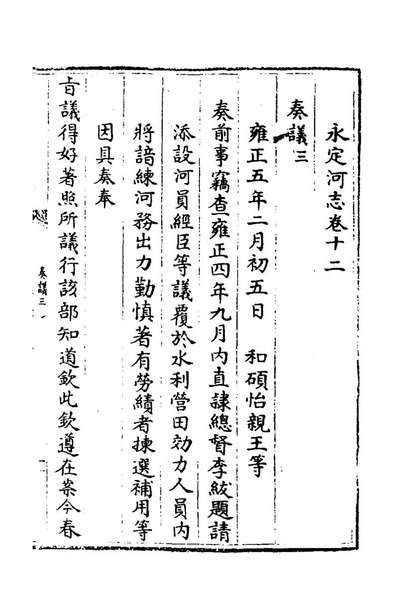 永定河志卷十二
奏議三
雍正五年二月初五日　和碩怡親王等
奏前事竊查雍正四年九月內直隷總督李紱題請
添設河員經臣等議覆於水利營田効力人員內
將諳練河務出力勤慎著有勞績者揀選補用等
因具奏奉
㫖議得好著照所議行該部知道欽此欽遵在案今春
奏議三
一